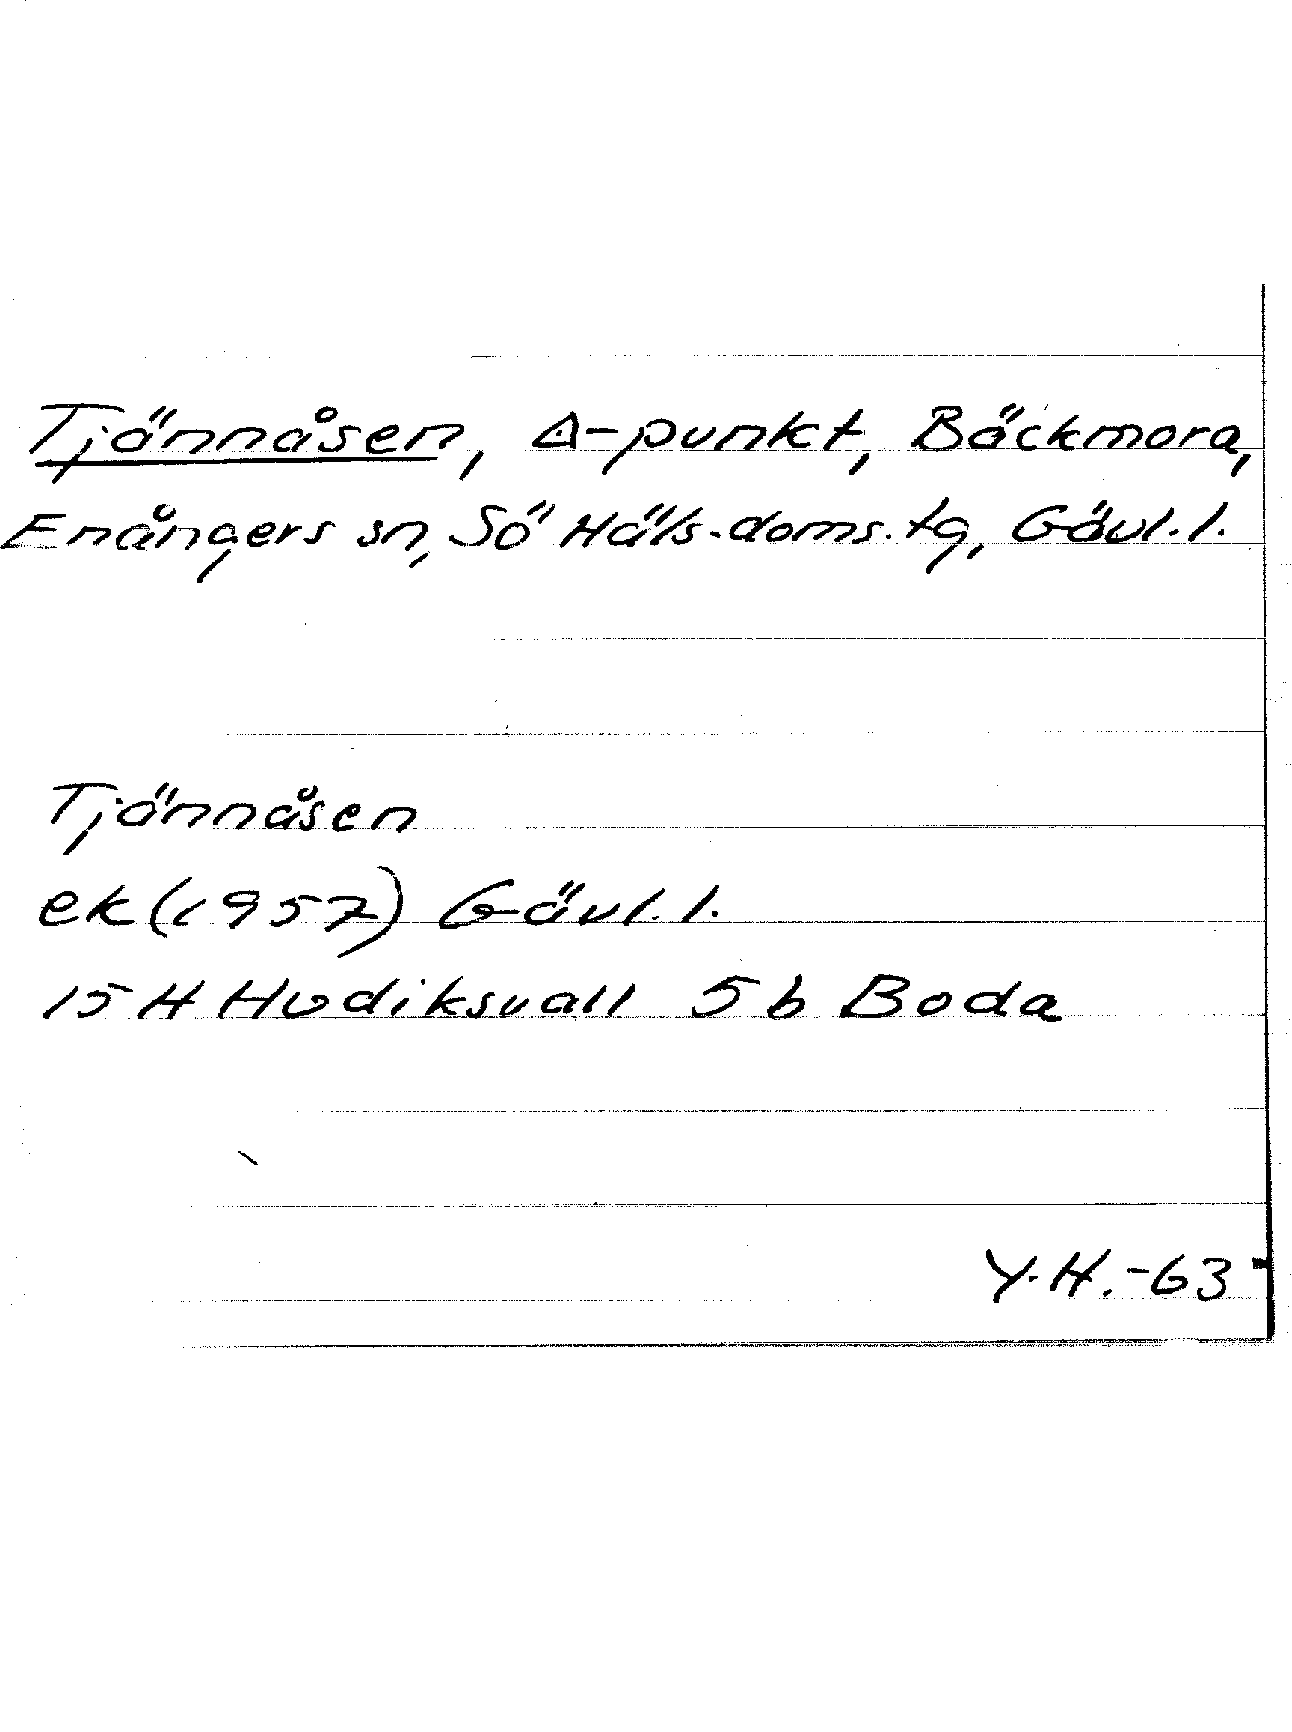 Tjännåsen, ∆-punkt, Bäckmora,
Enångers sn, Sö Häls. doms. tg, Gävl. l.
Tjännåsen
ek (1957) Gävl. l.
15 H Hudiksvall 5 b Boda
Y. H. -63